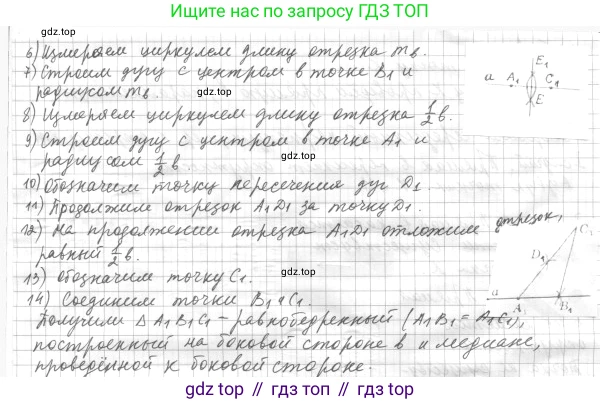 Ищите нас по запросу ГДЗ ТОП
gdz.top
6) Измеряем циркулем длину отрезка mв.
7) Строим дугу с центром в точке B1 и
радиусом mв.
gdz.top
8) Измеряем циркулем длину отрезка 1/2 в.
9) Строим дугу с центром в точке A1 и
радиусом 1/2 в.
gdz.top
10) Обозначим точку пересечения дуг D1.
11) Продолжим отрезок A1D1 за точку D1.
12) На продолжении отрезка A1D1 отложим отрезок,
равный 1/2 в.
gdz.top
13) Обозначим точку C1.
14) Соединим точки B1 и C1.
Получили △ A1B1C1 – равнобедренный (A1B1 = A1C1),
построенный на боковой стороне в и медиане,
проведённой к боковой стороне.
E1
a A1 C1
E
C1
D1
a A1 B1
gdz.top // гдз.top // gdz.top